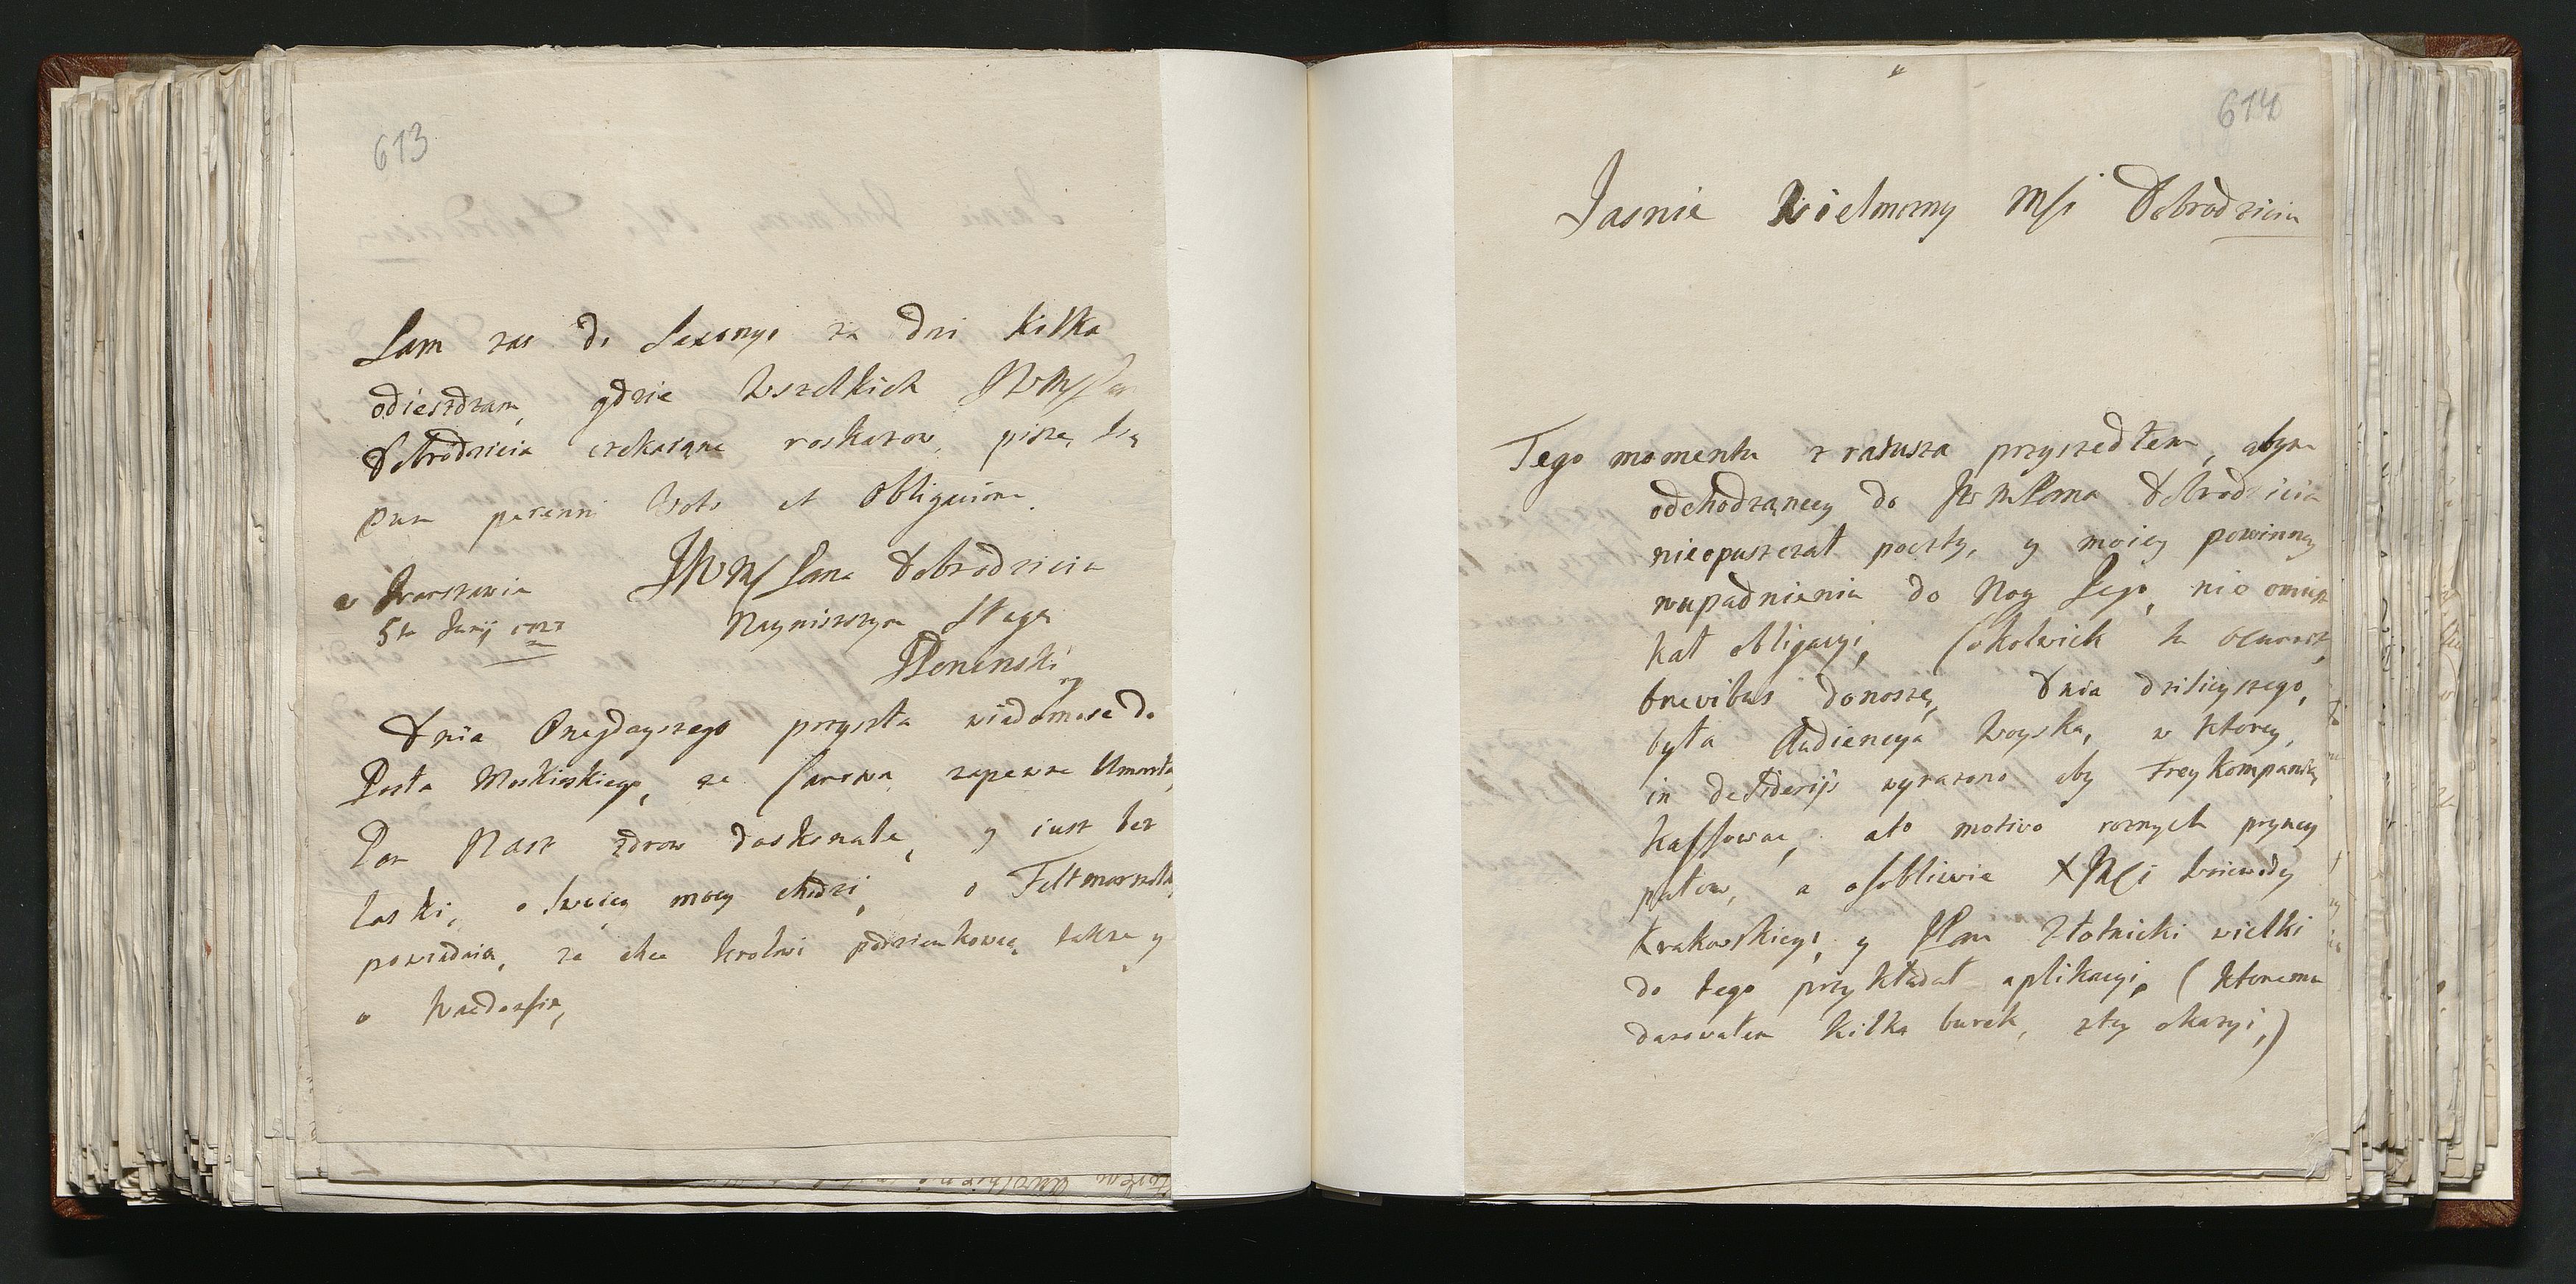 613
Sam zas do Saxonyi za dni kilka
odiezdzam, gdzie wszelkich JWMSPana
Dobrodzieia czekaiąc roskazow, piszę się
pur perenni Voto et Obligacione
JWMS Pana Dobrodzieia
w Warszawie
5ta Junij 1727
Nayniższym Sługą
Poninski
mp
Dnia Onegdayszego przyszła wiadomosc do
Posła Moskiewskiego, ze Carowa zapewne Umarła,
Pan Nasz zdrow doskonale, y iusz bez
laski, o swoiey mocy chodzi, o Feltmarszałku
powiadaia, ze chce krolowi podziękować, także y
o
614
Jasnie Wielmozny MSci Dobrodzieiu
Tego momentu z ratusza przyszedłem, abym
odchodzącey do JWMSPana Dobrodzieia
nieopuszczał poczty, y moiey powinney
wupadnieniu do Nog Jego, nie omiesz
kał obligacyi, Cokolwiek tu
brevibus donoszę, Dnia dzisieyszego,
była Audiencya woyska, w ktorey,
in desideriis wyrazono aby Freykompanią
kassowac, ato motivo roznych pryncy
pałow, a osobliwie XJMCi Woiewody
Krakowskiego, y JPan Złotnicki wielki
do tego przykładał aplikacyi, (ktoremu
darowałem kilka burek, ztey okazyi,)